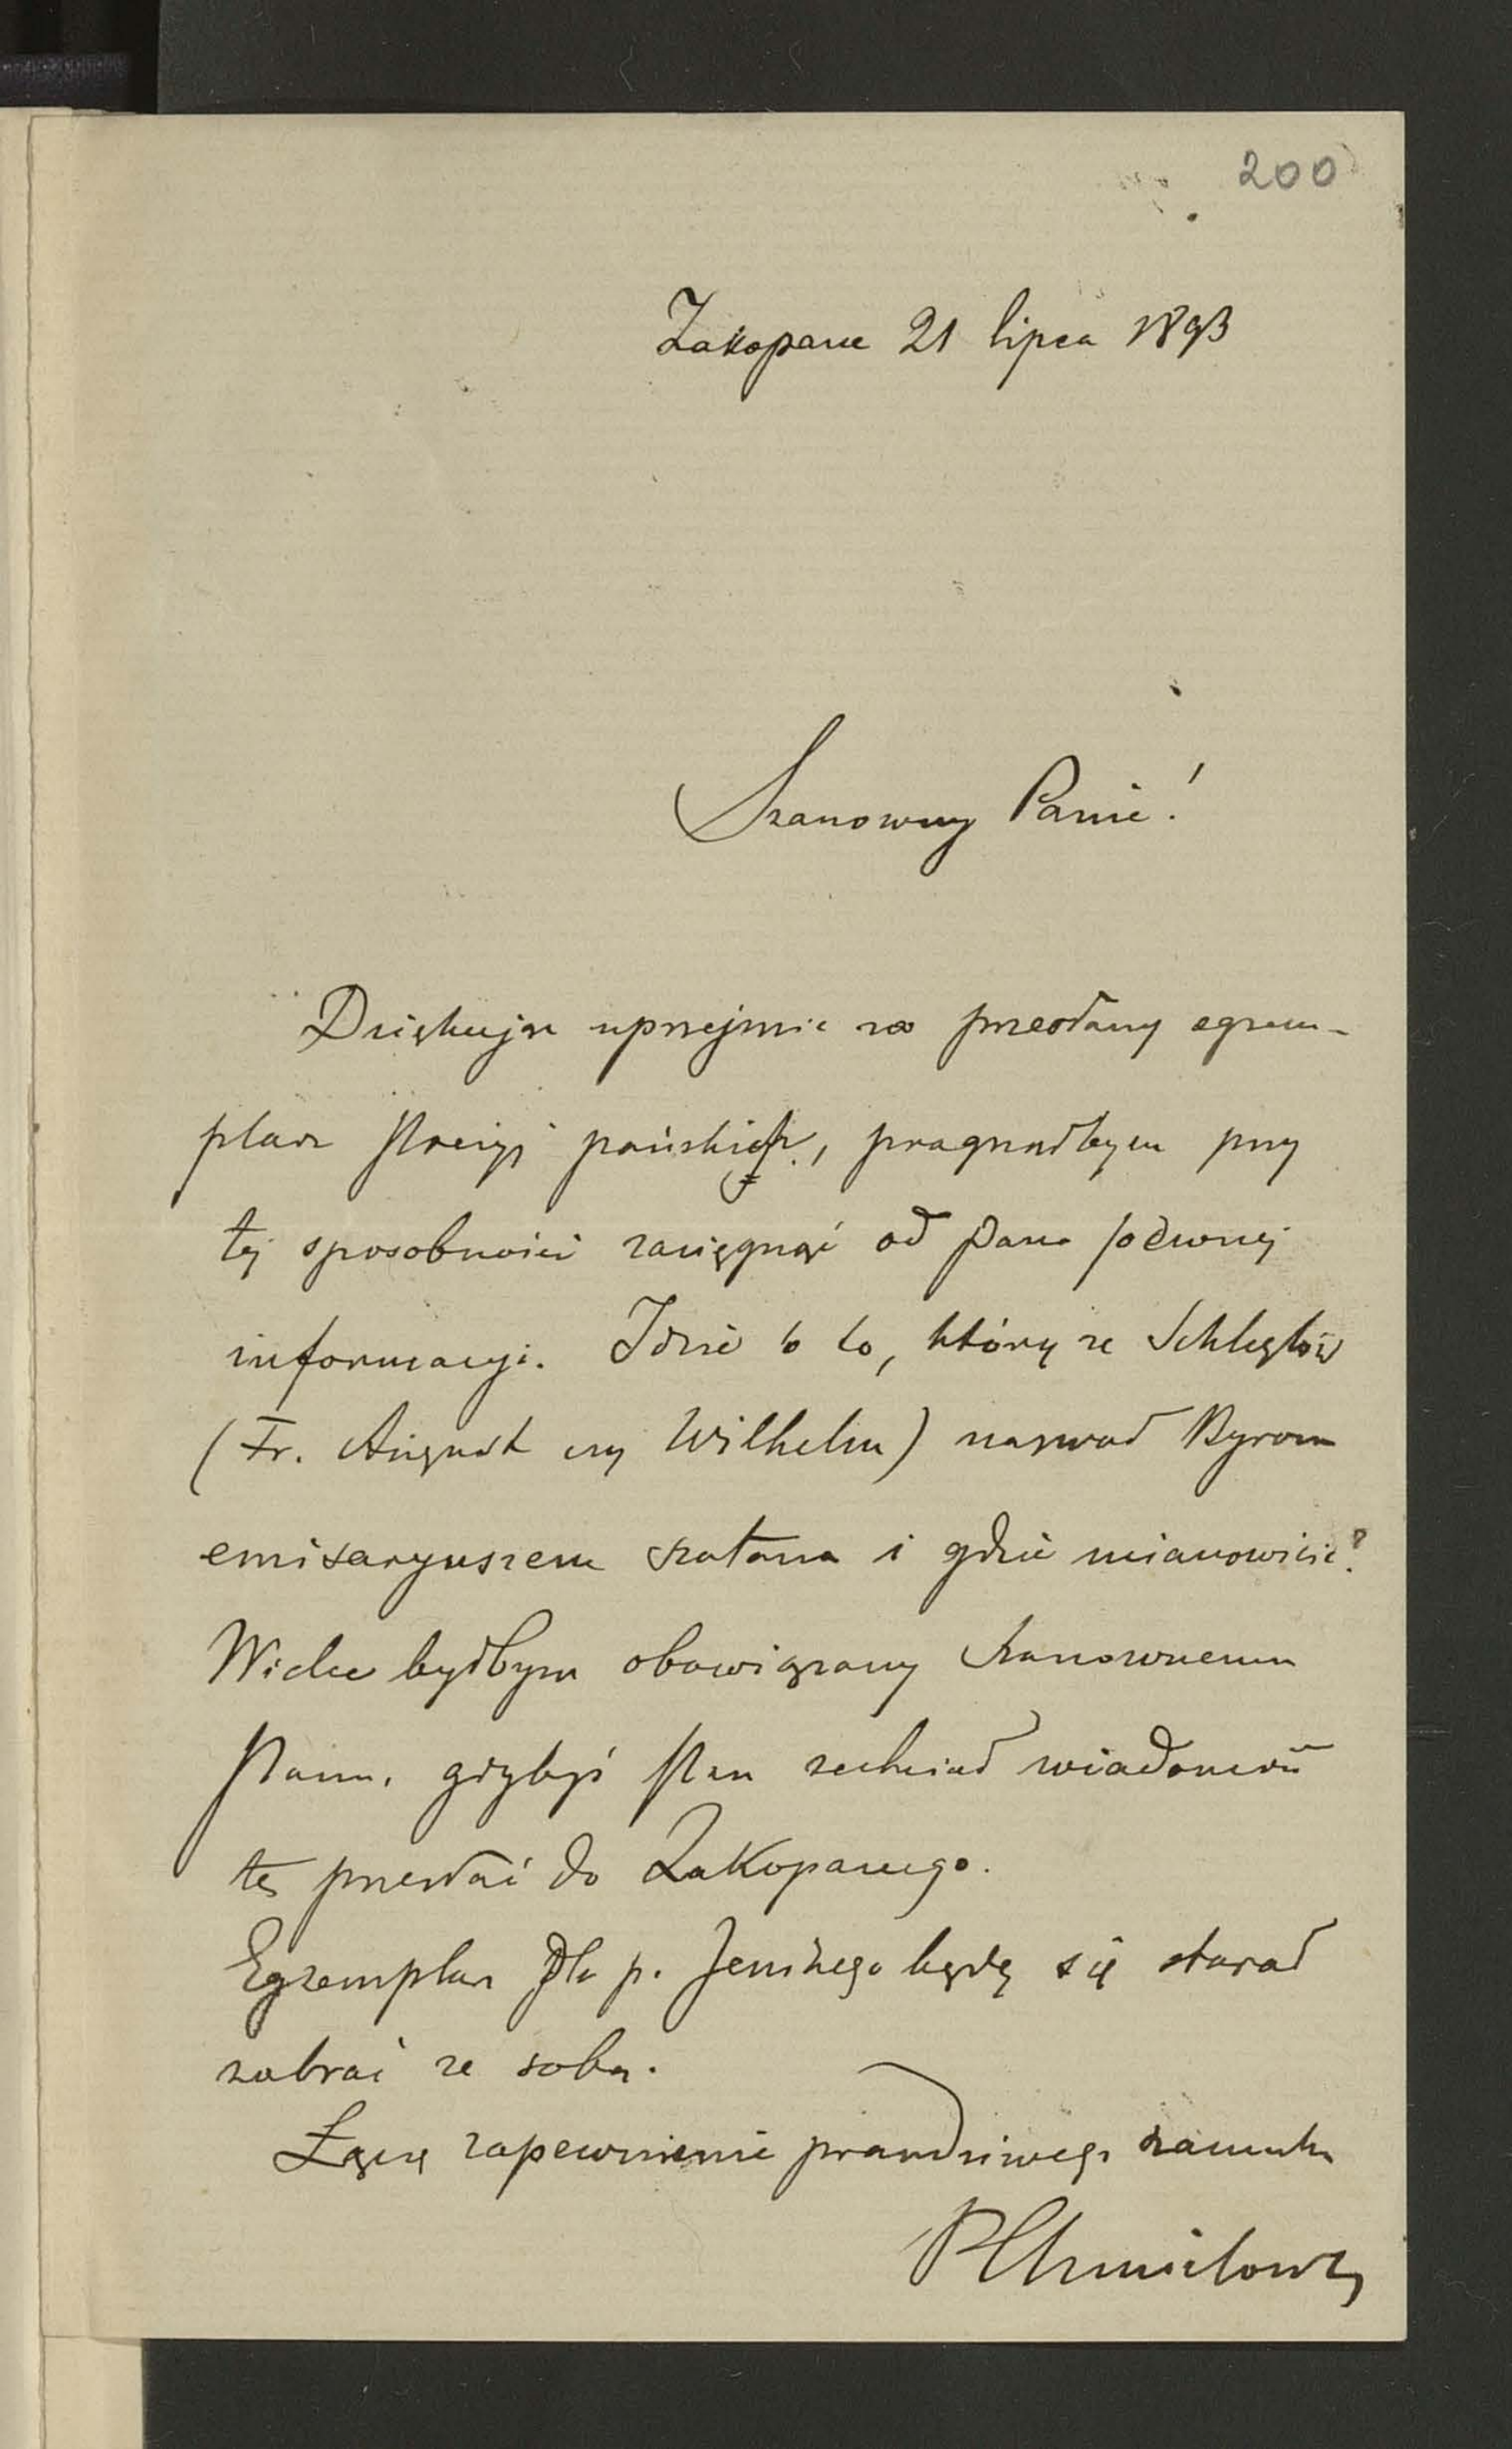 200
Zakopane 21 lipca 1893
Szanowny Panie!
Dziękując uprzejmie za przesłany egzem-
plarz Poezyj pańskich, pragnąłbym przy
tej sposobności zasięgnąć od Pana pewnej
informacyi. Idzie o to, który ze Schleglów
(Fr. August czy Wilhelm) nazwał Byrona
emisaryuszem szatana i gdzie mianowicie?
Wielce byłbym obowiązany Szanownemu
Panu, gdybyś Pan zechciał wiadomość
tę przesłać do Zakopanego.
Egzemplarz dla p. Jenikego będę się starał
zabrać ze sobą.
Łączę zapewnienie prawdziwego szacunku
PChmielowski